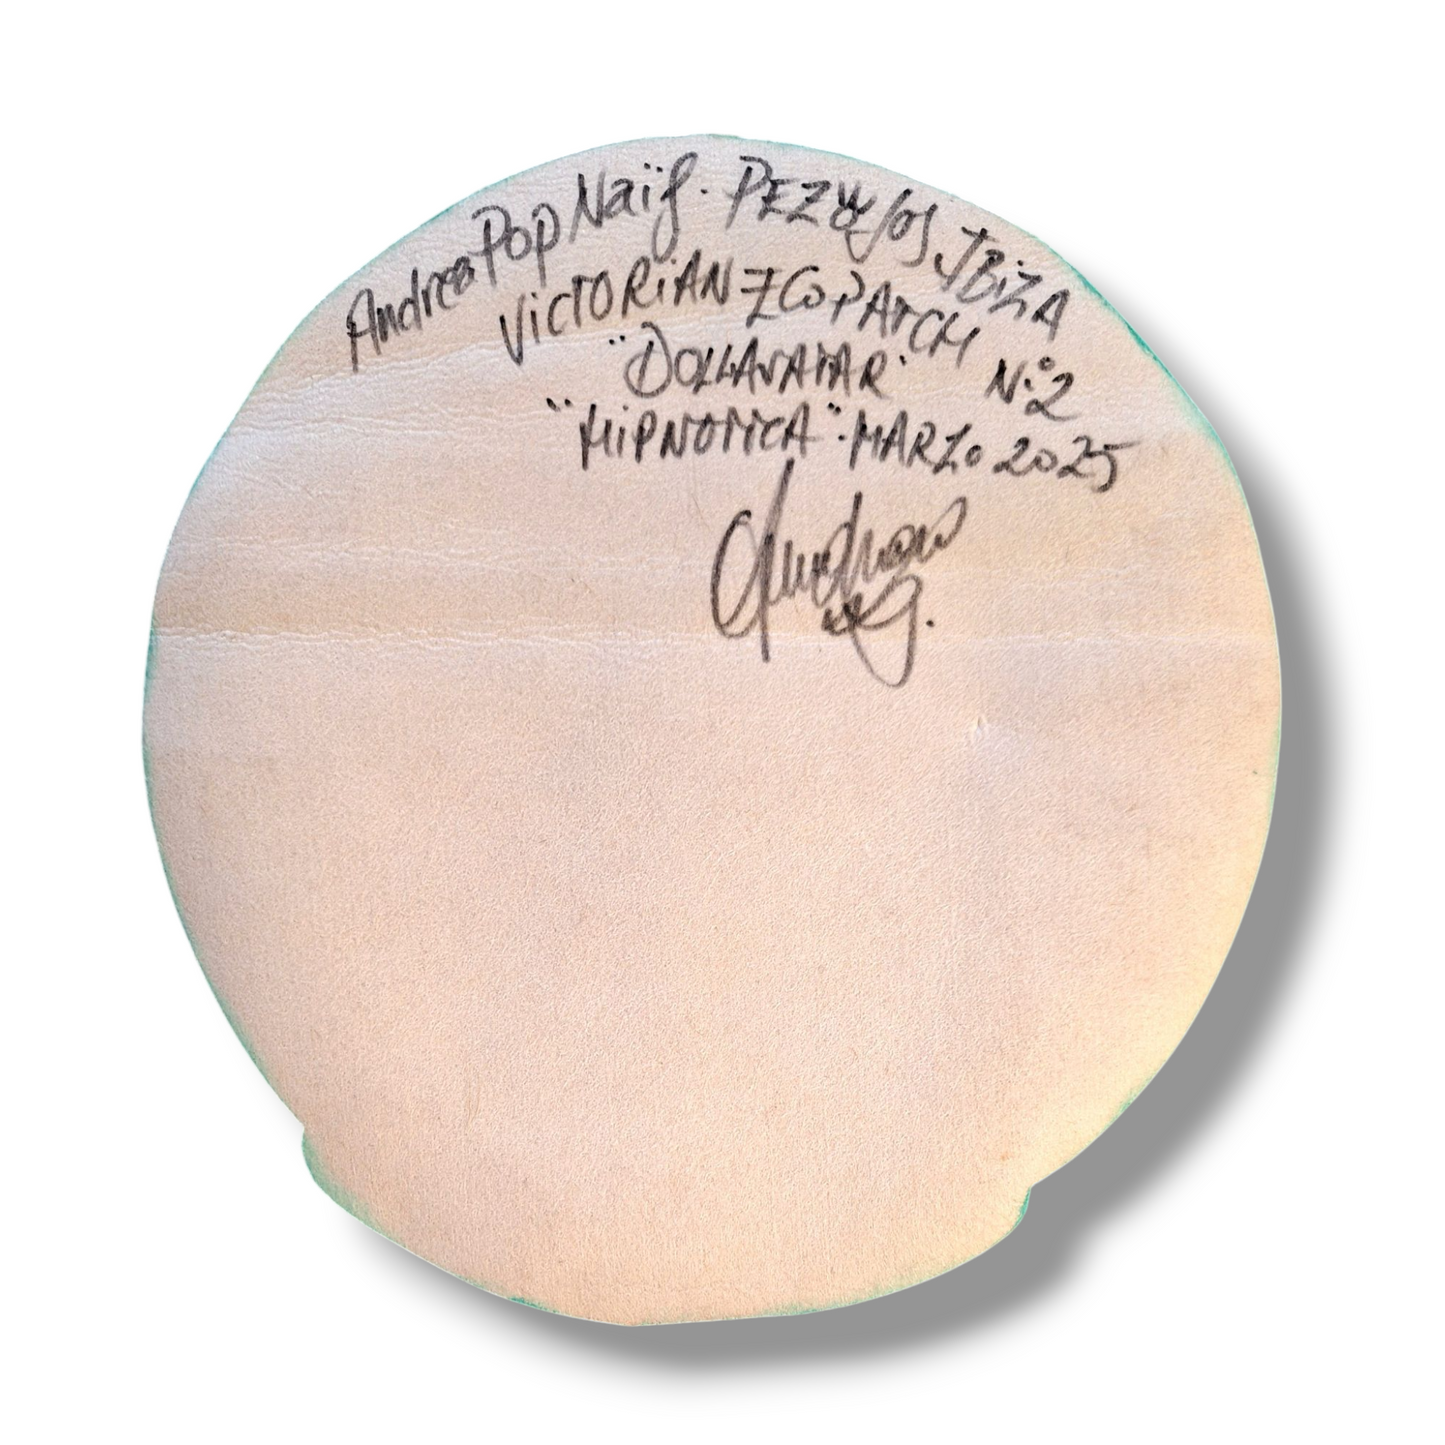 Andrea Pop Naïf. PEZylos IBiZA
ViCTORiAN ECOPATCH
"DOLLAVATAR" Nº2
"HiPNOTiCA". MARZO 2025
Andrea
G.